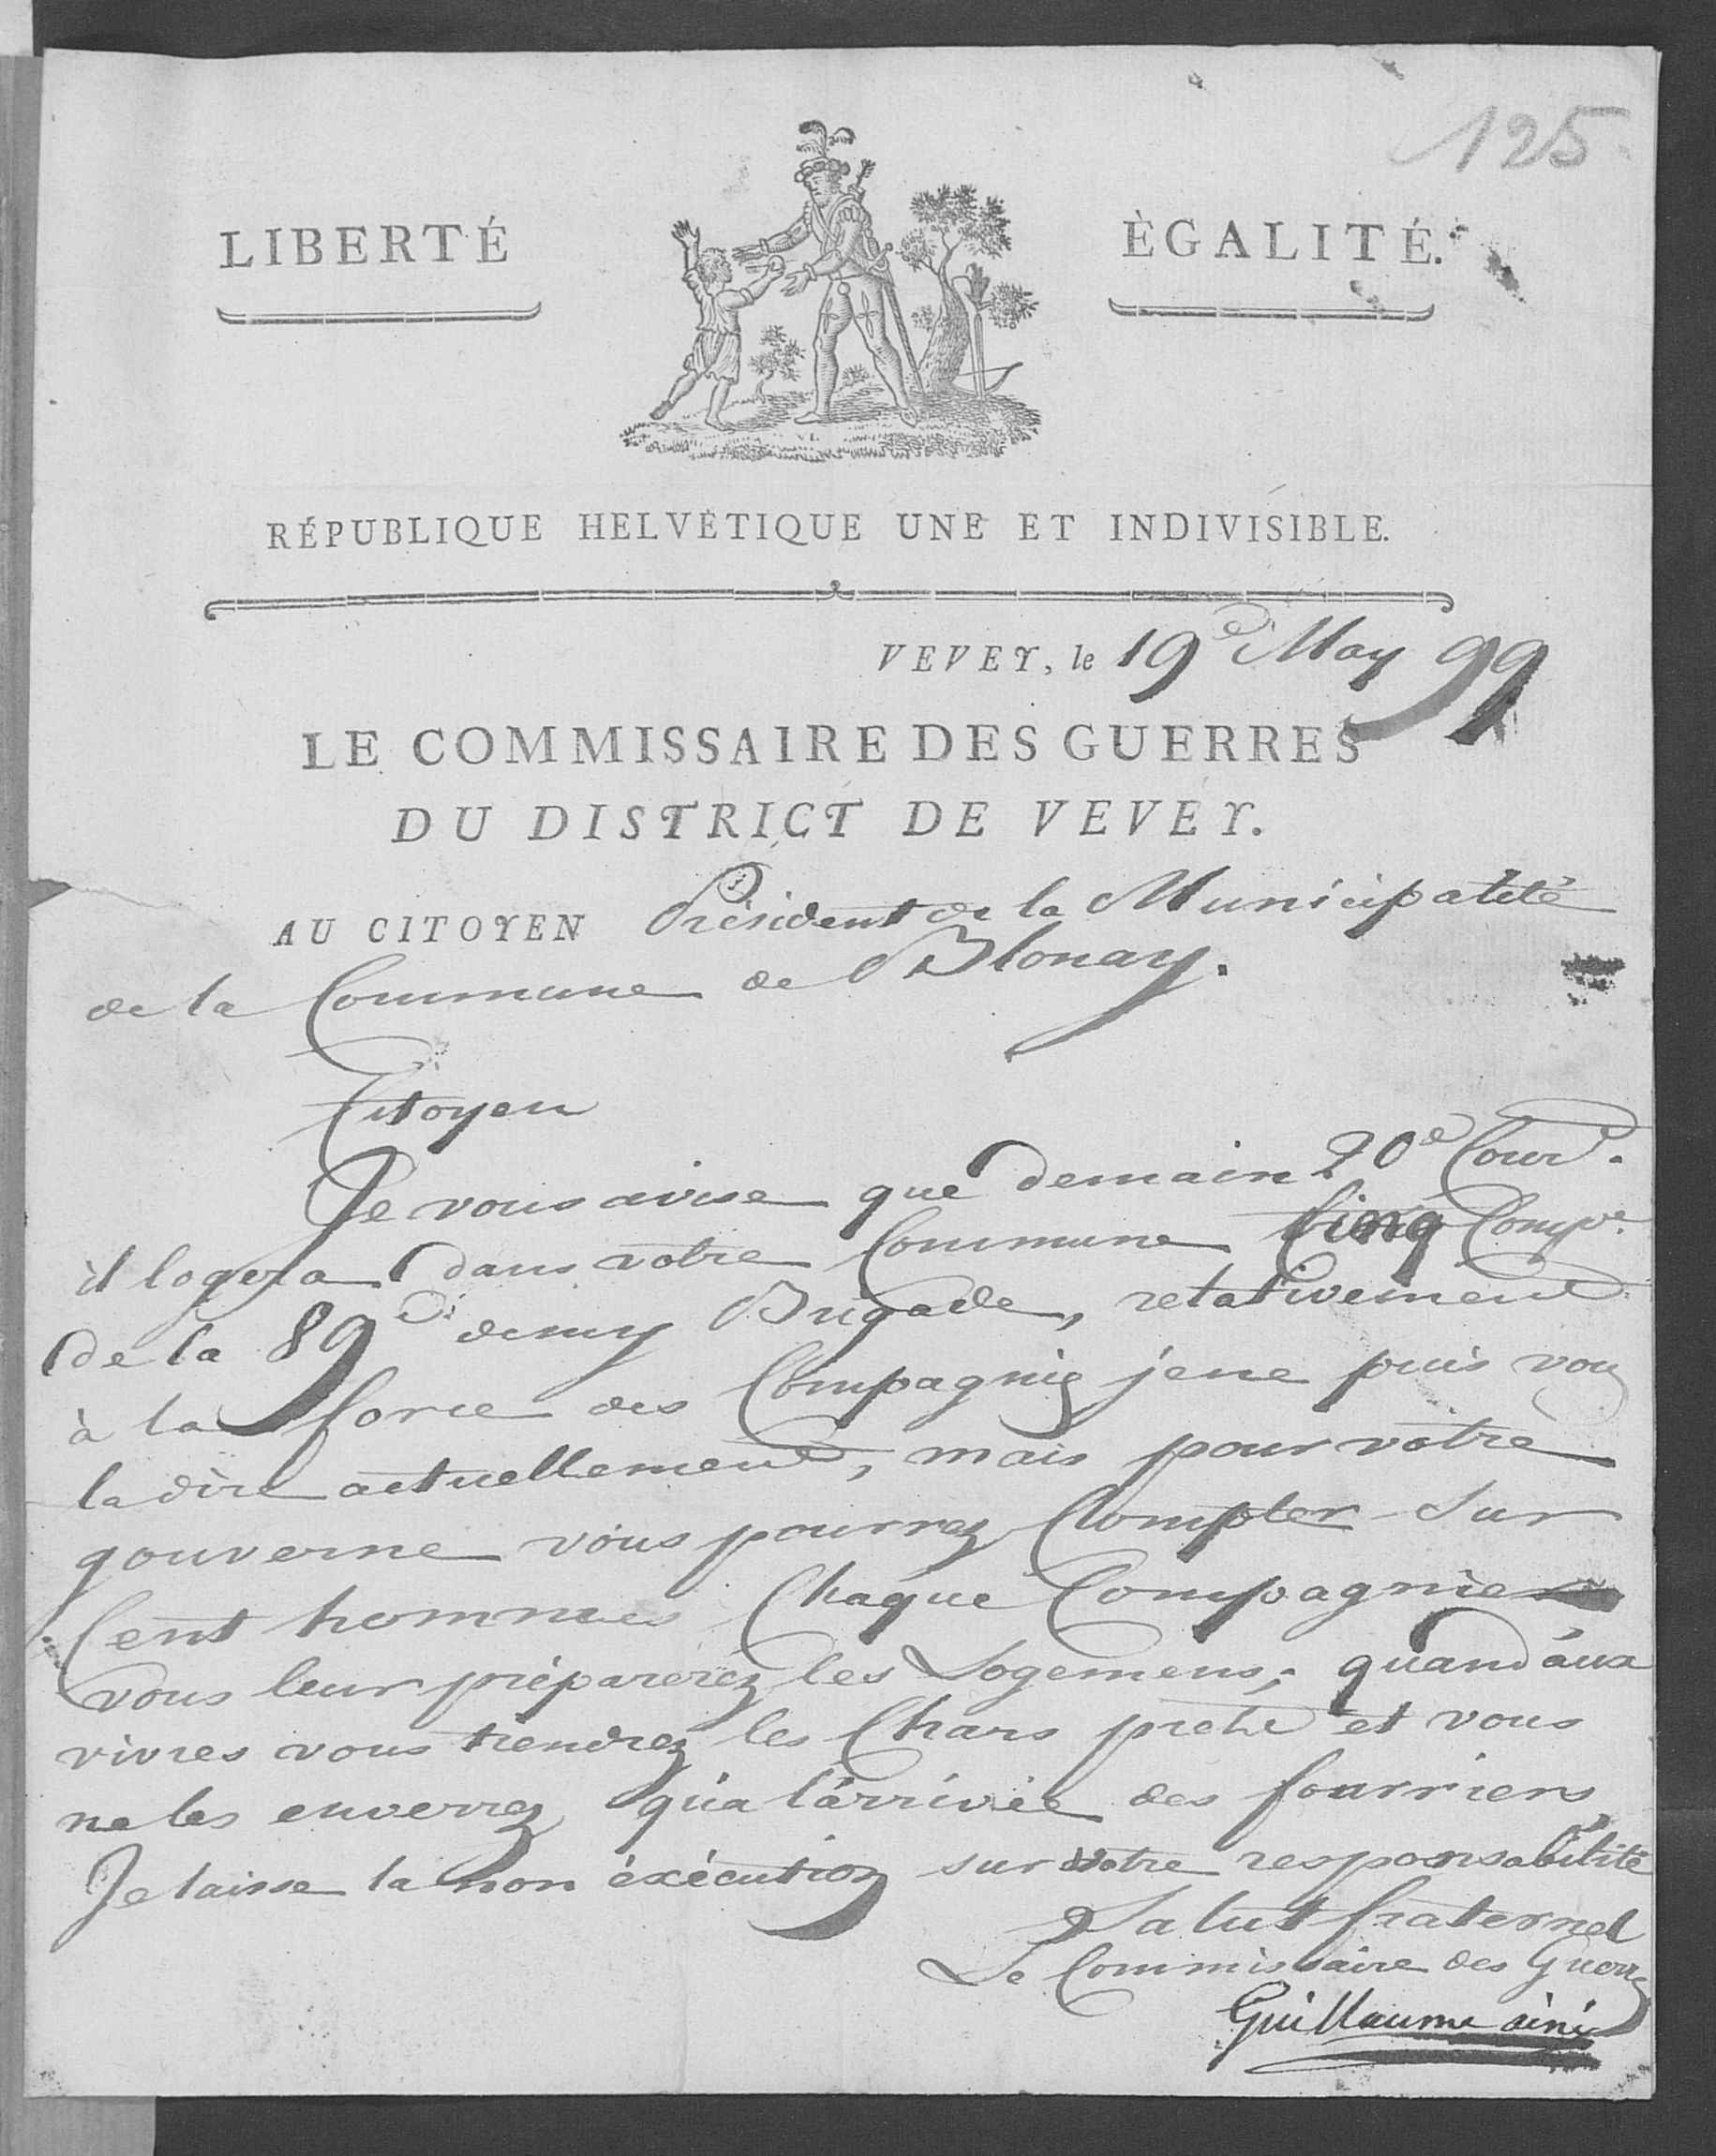 125
LIBERTÉ
ÈGALITÉ.
RÉPUBLIQUE HELVÉTIQUE UNE ET INDIVISIBLE.
VEVEY, le 19e May 99
LE COMMISSAIRE DES GUERRES
DU DISTRICT DE VEVEY.
AU CITOYEN Président de la Municipalité
de la Commune de Blonay.
Citoyen
Je vous avise que demain 20e Cour.t
il logera dans votre Commune Cinq Comp.e
de la 89e demy Brigade, relativement
à la force des Compagnies je ne puis vous
la dire actuellement, mais pour votre
gouverne vous pourrez Compter sur
Cent hommes Chaque Compagnie
vous leur préparerez les Logemens; quand aux
vivres vous tiendrez les Chars prets et vous
ne les enverrez qu'a l'arrivée des fourriers,
Je laisse la non éxécution sur votre responsabilité
Salut fraternel
Le Commissaire des Guerres
Guillaume ainé